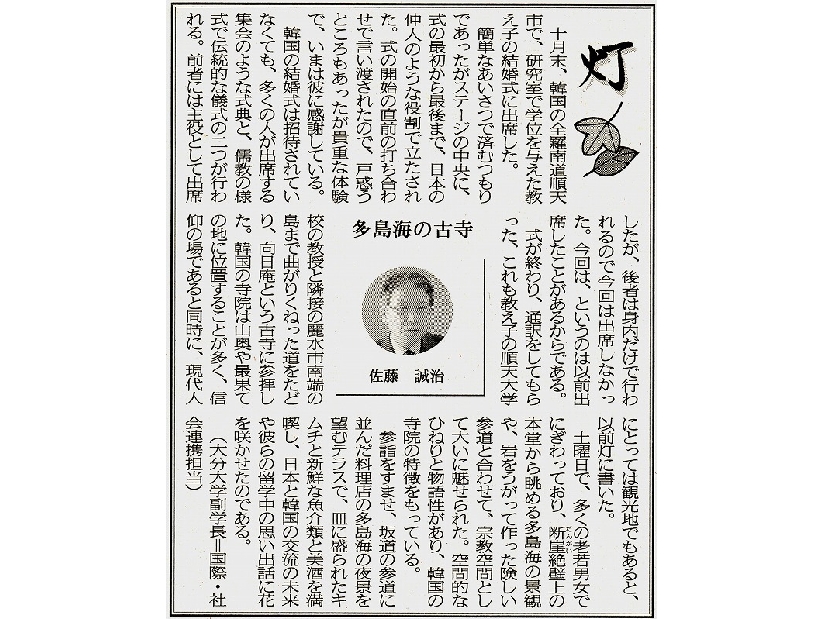 灯
十月末、韓国の全羅南道順天
市で、研究室で学位を与えた教
え子の結婚式に出席した。
簡単なあいさつで済むつもり
であったがステージの中央に、
式の最初から最後まで、日本の
仲人のような役割で立たされ
た。式の開始の直前の打ち合わ
せで言い渡されたので、戸惑う
ところもあったが貴重な体験
で、いまは彼に感謝している。
韓国の結婚式は招待されてい
なくても、多くの人が出席する
集会のような式典と、儒教の様
式で伝統的な儀式の二つが行わ
れる。前者には主役として出席
したが、後者は身内だけで行わ
れるので今回は出席しなかっ
た。今回は、というのは以前出
席したことがあるからである。
式が終わり、通訳をしてもら
った、これも教え子の順天大学
多島海の古寺
佐藤 誠治
校の教授と隣接の麗水市南端の
島まで曲がりくねった道をたど
り、向日庵という古寺に参拝し
た。韓国の寺院は山奥や最果て
の地に位置することが多く、信
仰の場であると同時に、現代人
にとっては観光地でもあると、
以前灯に書いた。
土曜日で、多くの老若男女で
にぎわっており、断崖絶壁上の
だんがい
本堂から眺める多島海の景観
や、岩をうがって作った険しい
参道と合わせて、宗教空間とし
て大いに魅せられた。空間的な
ひねりと物語性があり、韓国の
寺院の特徴をもっている。
参詣をすませ、坂道の参道に
並んだ料理店の多島海の夜景を
望むテラスで、皿に盛られたキ
ムチと新鮮な魚介類と美酒を満
喫し、日本と韓国の交流の未来
や彼らの留学中の思い出話に花
を咲かせたのである。
（大分大学副学長＝国際・社
会連携担当）